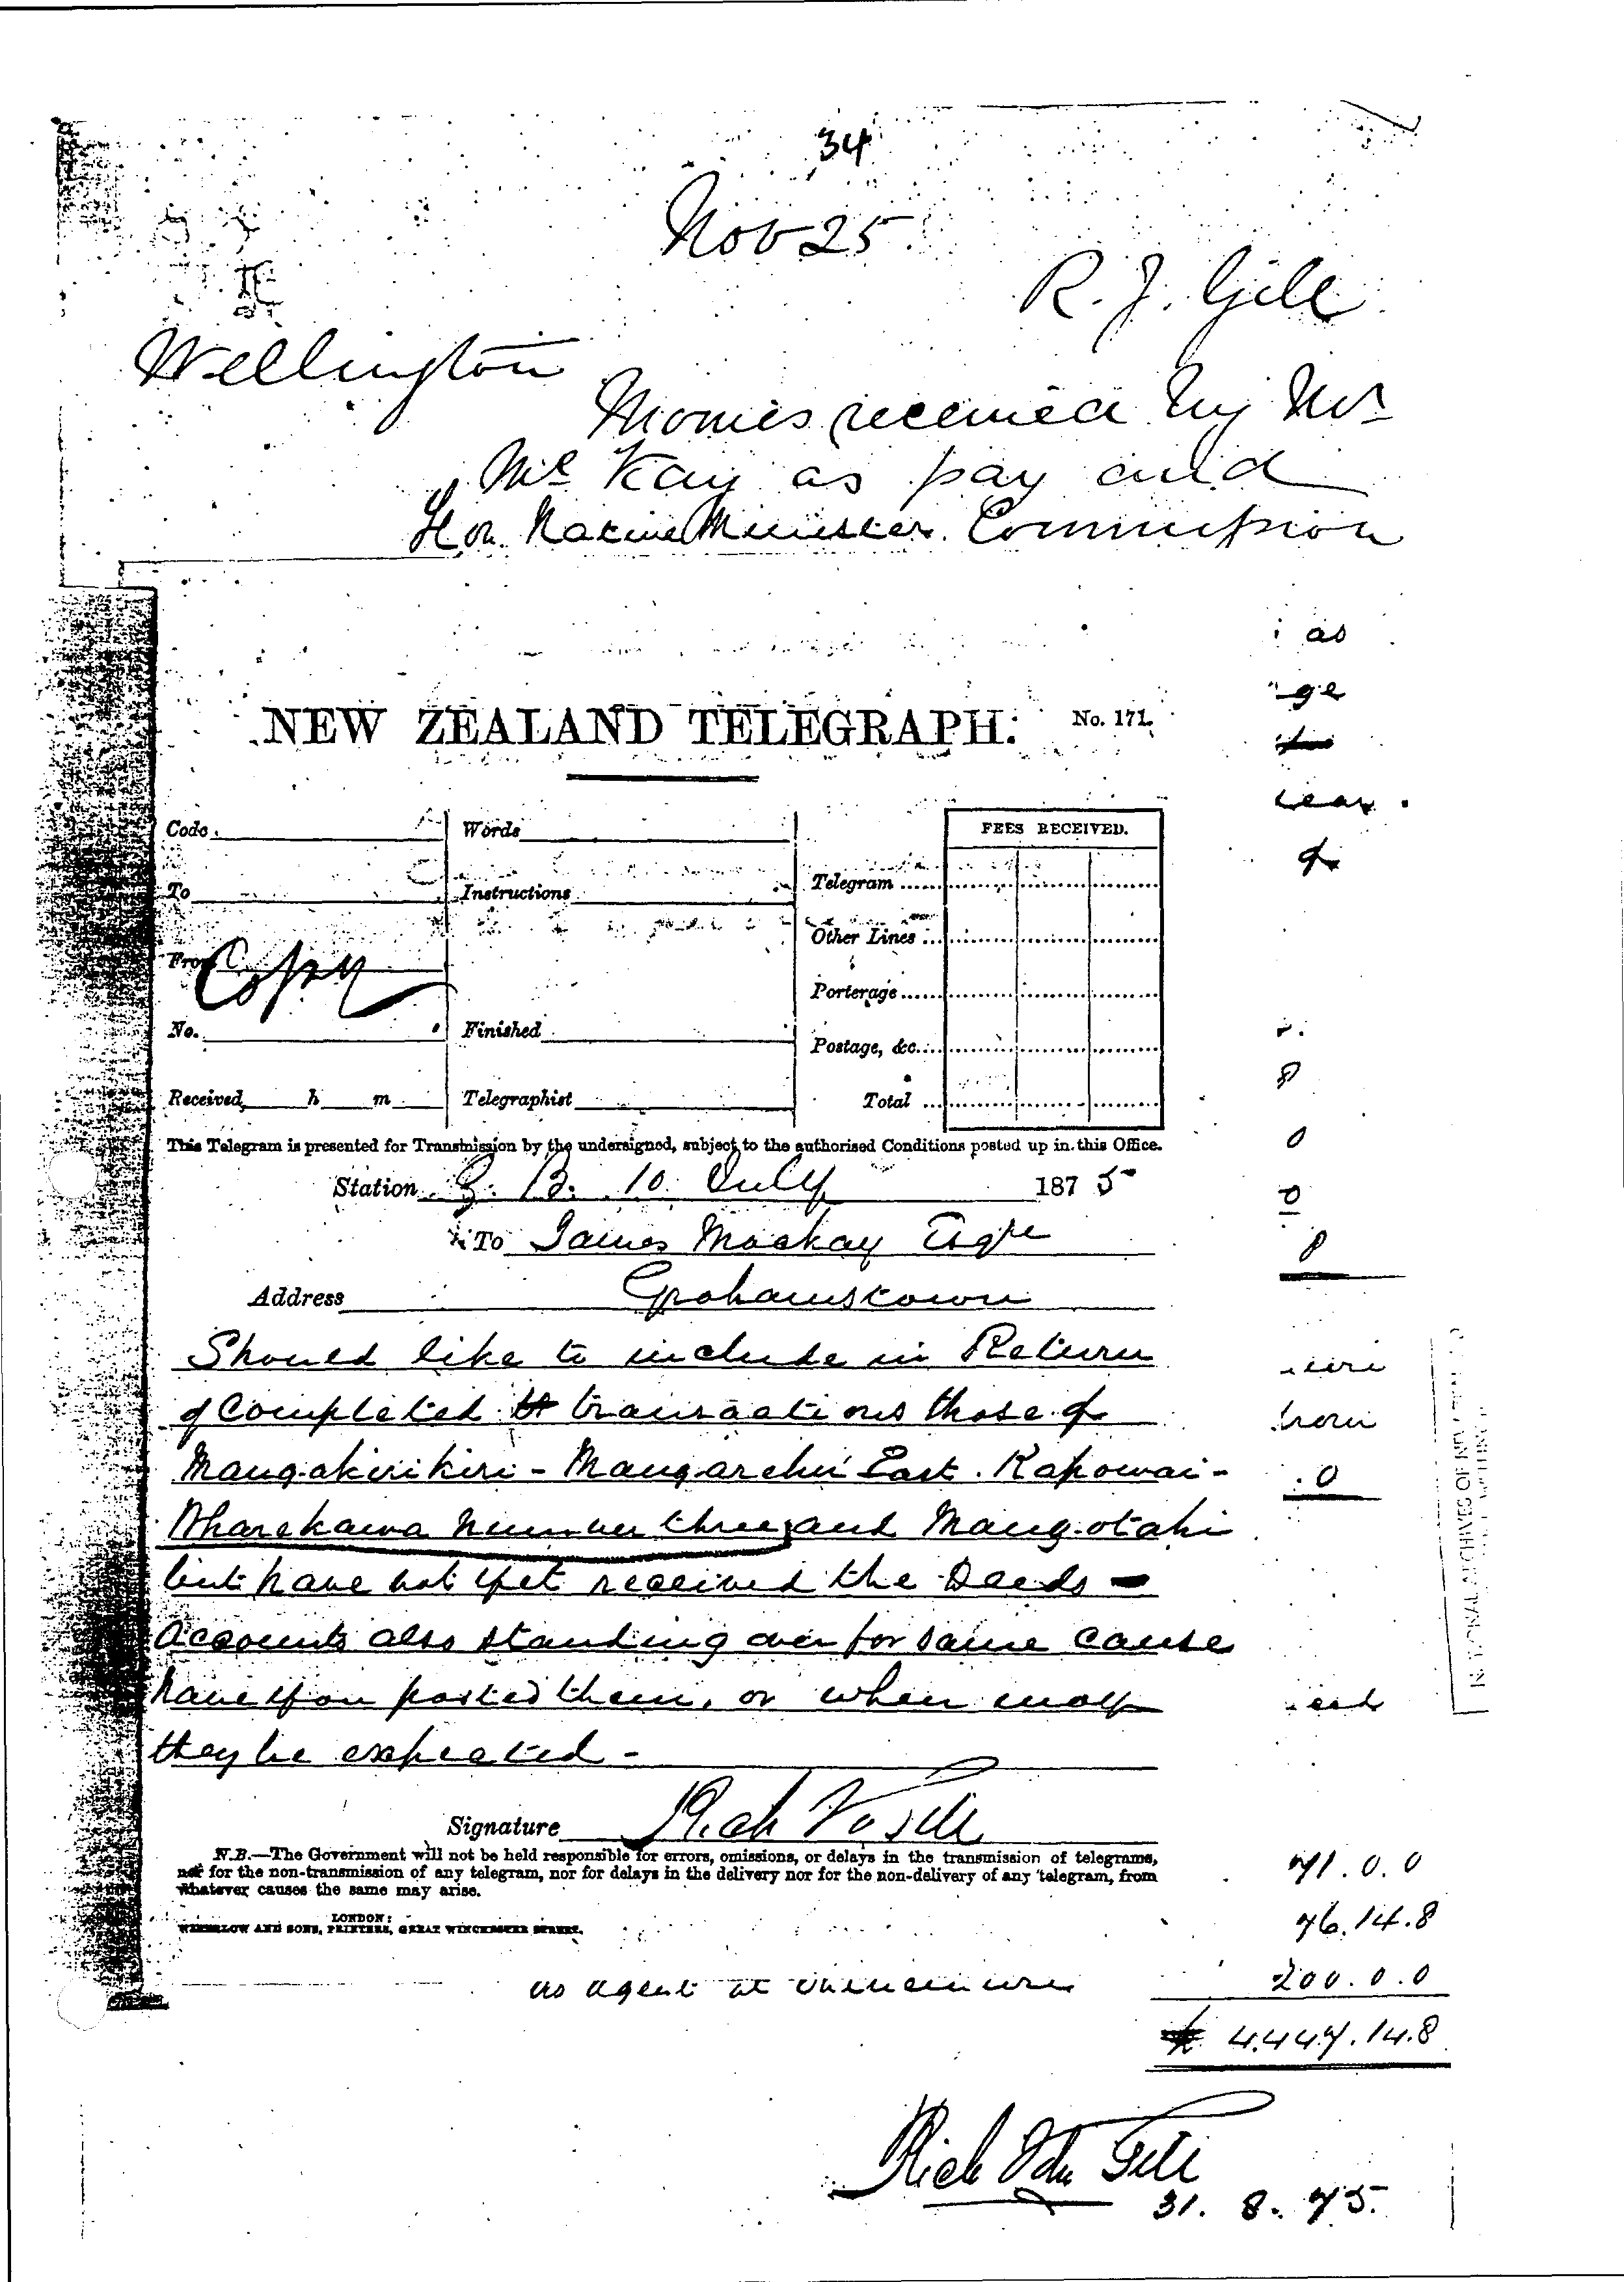 34
Nov 25
R. J. Gill
Wellington
Monies received by Mr
McKay as pay and
Commission
Hon. Native Minister.
as
ge
of
NEW ZEALAND TELEGRAPH. No. 171.
Code
Words
FEES RECEIVED.
To
Instructions
Telegram
Other Lines
From
Copy
Porterage
No.
Finished
Postage, &c.
Received, h m
Telegraphist
Total
This Telegram is presented for Transmission by the undersigned, subject to the authorised Conditions posted up in this Office.
Station G. B. 10. July 1875
To James Mackay Esqre
Address Grahamstown
Should like to include in Return
of Completed transactions those of
Mangakirikiri - Mangarehu East. Kapowai -
Wharekawa number three and Mangotahi
but have not yet received the Deeds -
Accounts also standing over for same cause
have you posted them, or when may
they be expected -
Signature Rich
N.B.—The Government will not be held responsible for errors, omissions, or delays in the transmission of telegrams,
nor for the non-transmission of any telegram, nor for delays in the delivery nor for the non-delivery of any telegram, from
whatever causes the same may arise.
LONDON:
WATERLOW AND SONS, PRINTERS, GREAT WINCHESTER STREET.
71.0.0
76.14.8
as agent at
200.0.0
4.447.14.8
Rich Jdn Gill
31. 8. 75.